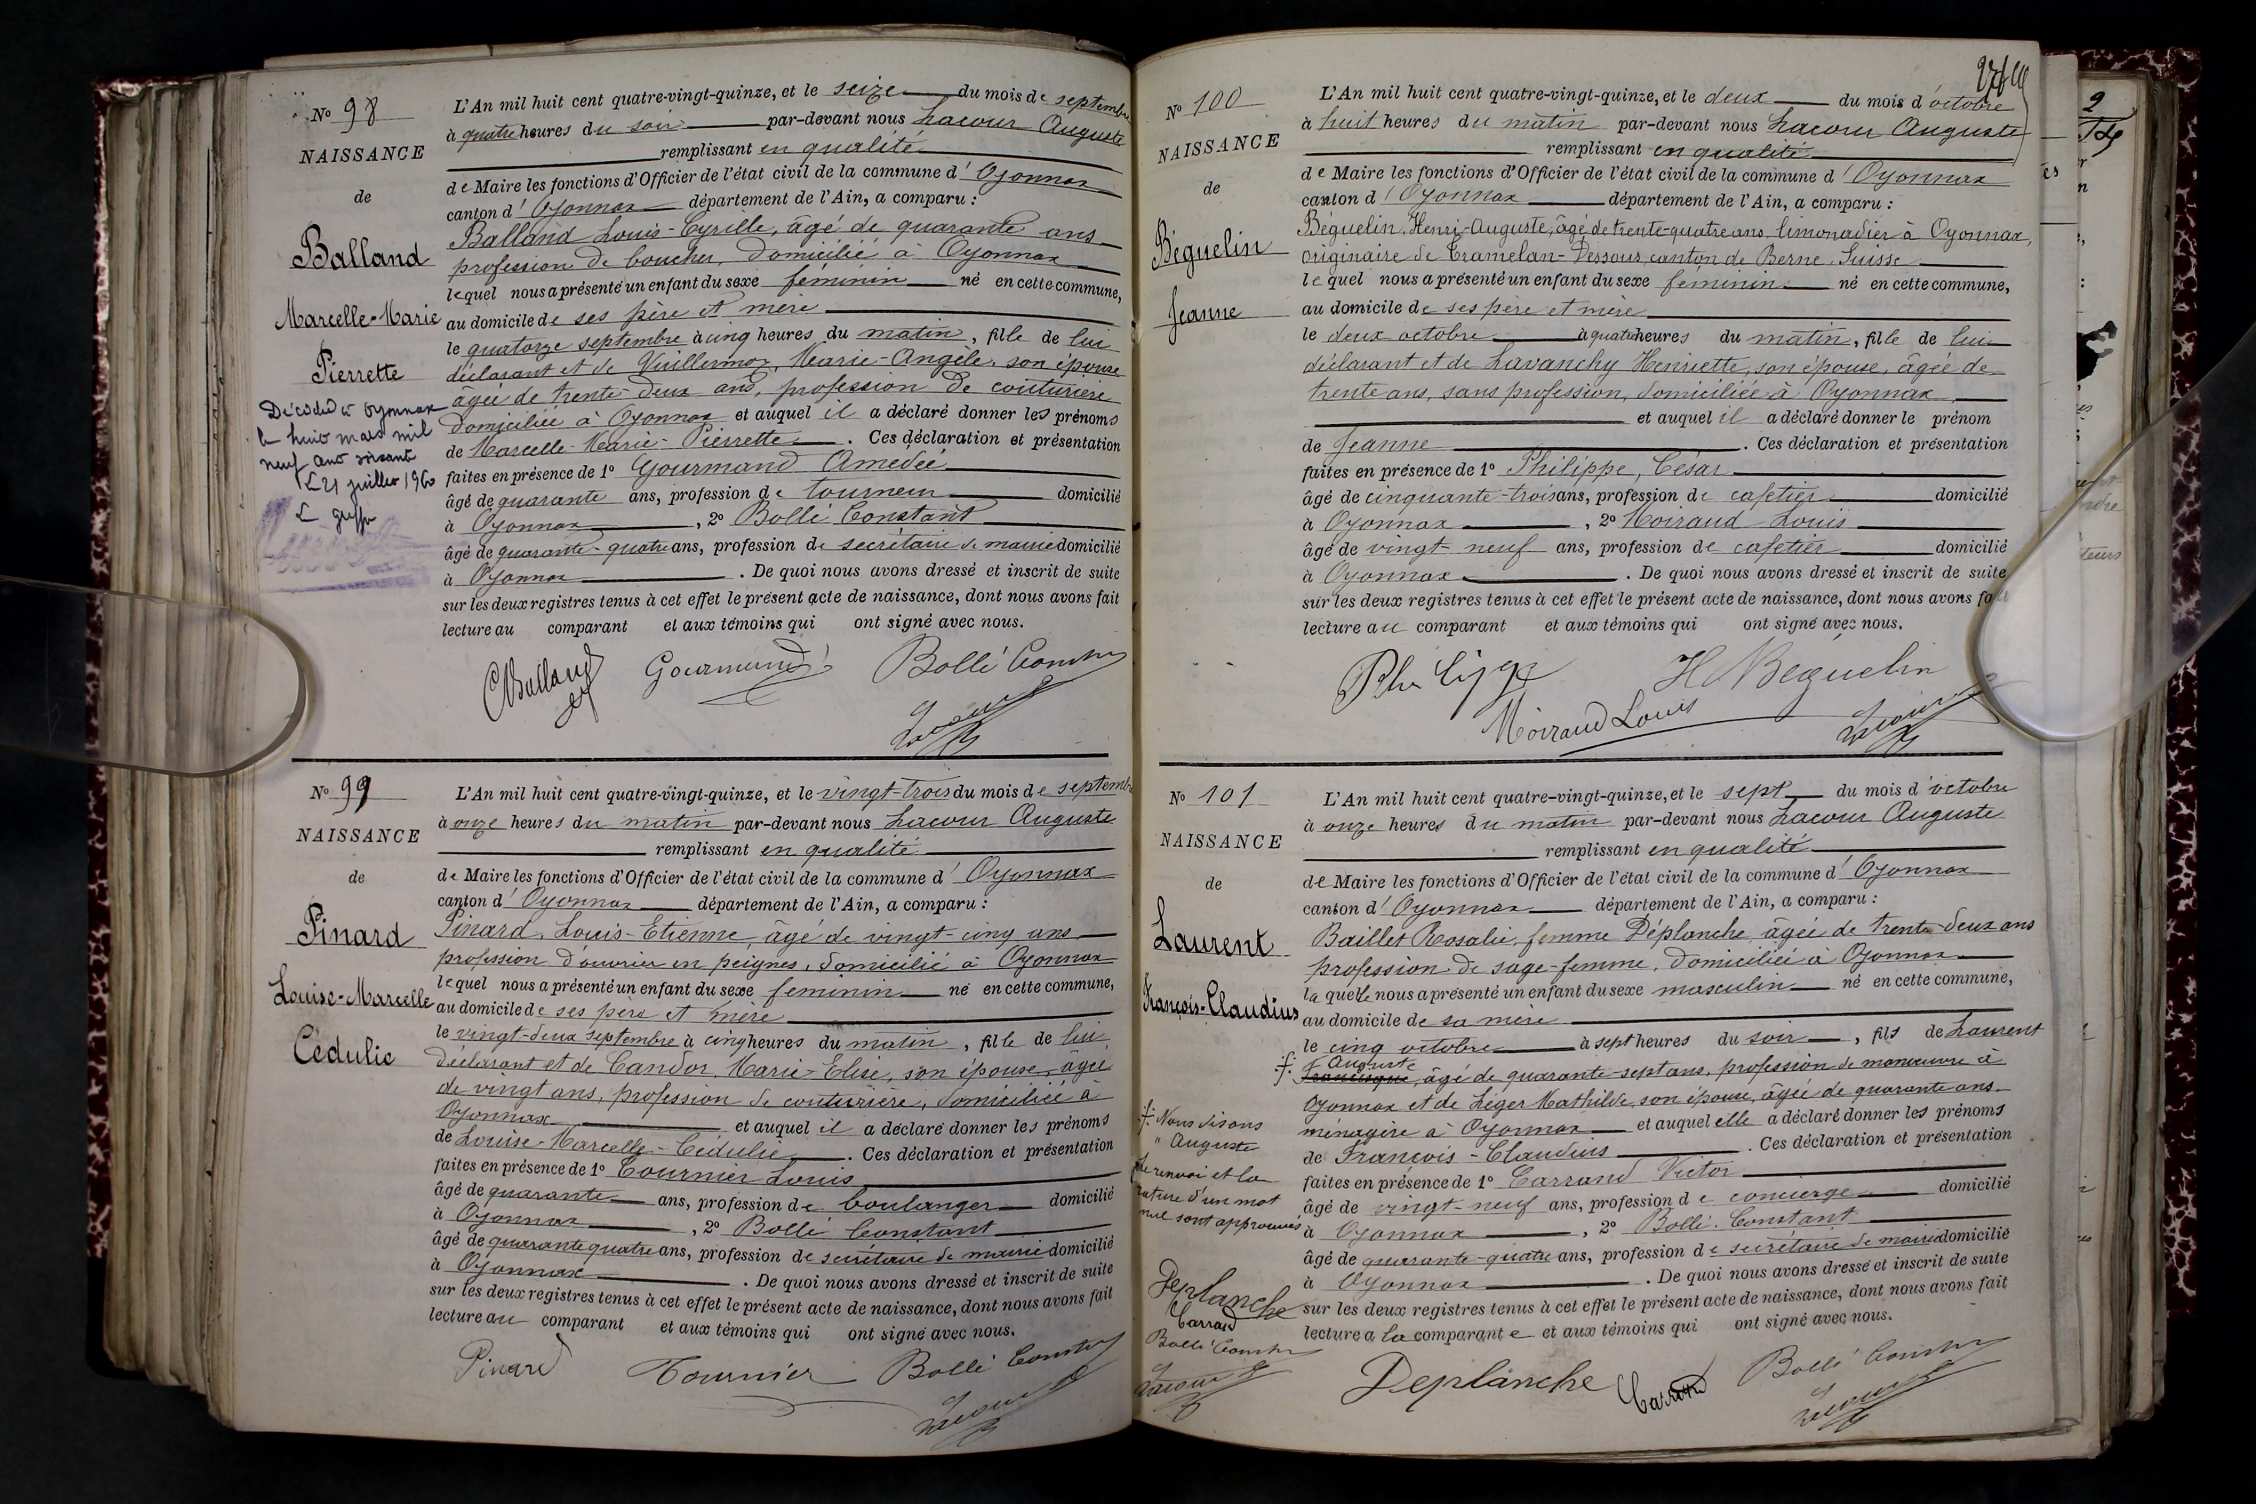 Nº 98
NAISSANCE
de
Balland
Marcelle-Marie
Pierrette
Décédée à Oyonnax
le huit mars mil
neuf cent soixante
Le 21 juillet 1960
Le greffier
L'An mil huit cent quatre-vingt-quinze, et le seize du mois de septembre
à quatre heures du soir par-devant nous Lacour Auguste
remplissant en qualité
de Maire les fonctions d'Officier de l'état civil de la commune d'Oyonnax
canton d'Oyonnax département de l'Ain, a comparu :
Balland Louis-Cyrille, âgé de quarante ans
profession de boucher, domicilié à Oyonnax
lequel nous a présenté un enfant du sexe féminin né en cette commune,
au domicile de ses père et mère
le quatorze septembre à cinq heures du matin, fille de lui
déclarant et de Vuillermoz, Marie-Angèle, son épouse
âgée de trente-deux ans, profession de couturière
domiciliée à Oyonnax et auquel il a déclaré donner les prénoms
de Marcelle-Marie-Pierrette. Ces déclaration et présentation
faites en présence de 1º Gourmand Amédée
âgé de quarante ans, profession de tourneur domicilié
à Oyonnax, 2º Bollé Constant
âgé de quarante-quatre ans, profession de secrétaire de mairie domicilié
à Oyonnax. De quoi nous avons dressé et inscrit de suite
sur les deux registres tenus à cet effet le présent acte de naissance, dont nous avons fait
lecture au comparant et aux témoins qui ont signé avec nous.
CBalland Gourmand Bollé Constant
Lacour
Nº 99
NAISSANCE
de
Pinard
Louise-Marcelle
Cédulie
L'An mil huit cent quatre-vingt-quinze, et le vingt-trois du mois de septembre
à onze heures du matin par-devant nous Lacour Auguste
remplissant en qualité
de Maire les fonctions d'Officier de l'état civil de la commune d'Oyonnax
canton d'Oyonnax département de l'Ain, a comparu :
Pinard, Louis-Etienne, âgé de vingt-cinq ans
profession d'ouvrier en peignes, domicilié à Oyonnax
lequel nous a présenté un enfant du sexe féminin né en cette commune,
au domicile de ses père et mère
le vingt-deux septembre à cinq heures du matin, fille de lui
déclarant et de Candor, Marie-Elise, son épouse, âgée
de vingt ans, profession de couturière, domiciliée à
Oyonnax et auquel il a déclaré donner les prénoms
de Louise-Marcelle-Cédulie. Ces déclaration et présentation
faites en présence de 1º Tournier Louis
âgé de quarante ans, profession de boulanger domicilié
à Oyonnax, 2º Bollé Constant
âgé de quarante quatre ans, profession de secrétaire de mairie domicilié
à Oyonnax. De quoi nous avons dressé et inscrit de suite
sur les deux registres tenus à cet effet le présent acte de naissance, dont nous avons fait
lecture au comparant et aux témoins qui ont signé avec nous.
Pinard Tournier Bollé Constant
Lacour
Nº 100
NAISSANCE
de
Béguelin
Jeanne
L'An mil huit cent quatre-vingt-quinze, et le deux du mois d'octobre
à huit heures du matin par-devant nous Lacour Auguste
remplissant en qualité
de Maire les fonctions d'Officier de l'état civil de la commune d'Oyonnax
canton d'Oyonnax département de l'Ain, a comparu :
Béguelin, Henri-Auguste, âgé de trente-quatre ans limonadier à Oyonnax,
originaire de Tramelan-Dessous, canton de Berne, Suisse
lequel nous a présenté un enfant du sexe féminin né en cette commune,
au domicile de ses père et mère
le deux octobre à quatre heures du matin, fille de lui
déclarant et de Lavanchy Henriette, son épouse, âgée de
trente ans, sans profession, domiciliée à Oyonnax,
et auquel il a déclaré donner le prénom
de Jeanne. Ces déclaration et présentation
faites en présence de 1º Philippe, César
âgé de cinquante-trois ans, profession de cafetier domicilié
à Oyonnax, 2º Moiraud Louis
âgé de vingt-neuf ans, profession de cafetier domicilié
à Oyonnax. De quoi nous avons dressé et inscrit de suite
sur les deux registres tenus à cet effet le présent acte de naissance, dont nous avons fait
lecture au comparant et aux témoins qui ont signé avec nous.
Philippe H Béguelin
Moiraud Louis Lacour
Nº 101
NAISSANCE
de
Laurent
François-Claudius
L'An mil huit cent quatre-vingt-quinze, et le sept du mois d'octobre
à onze heures du matin par-devant nous Lacour Auguste
remplissant en qualité
de Maire les fonctions d'Officier de l'état civil de la commune d'Oyonnax
canton d'Oyonnax département de l'Ain, a comparu :
Baillet Rosalie, femme Déplanche, âgée de trente-deux ans
profession de sage-femme, domiciliée à Oyonnax
laquelle nous a présenté un enfant du sexe masculin né en cette commune,
au domicile de sa mère
le cinq octobre à sept heures du soir, fils de Laurent
Auguste
Francisque, âgé de quarante-sept ans, profession de manœuvre à
Oyonnax et de Léger Mathilde, son épouse, âgée de quarante ans
ménagère à Oyonnax et auquel elle a déclaré donner les prénoms
de François-Claudius. Ces déclaration et présentation
faites en présence de 1º Carrand Victor
âgé de vingt-neuf ans, profession de concierge domicilié
à Oyonnax, 2º Bollé Constant
âgé de quarante-quatre ans, profession de secrétaire de mairie domicilié
à Oyonnax. De quoi nous avons dressé et inscrit de suite
sur les deux registres tenus à cet effet le présent acte de naissance, dont nous avons fait
lecture a la comparante et aux témoins qui ont signé avec nous.
Nous disons
" Auguste
Le renvoi et la
rature d'un mot
nul sont approuvés
Deplanche
Carrand
Bollé Constant
Lacour
Deplanche Carrand Bollé Constant
Lacour